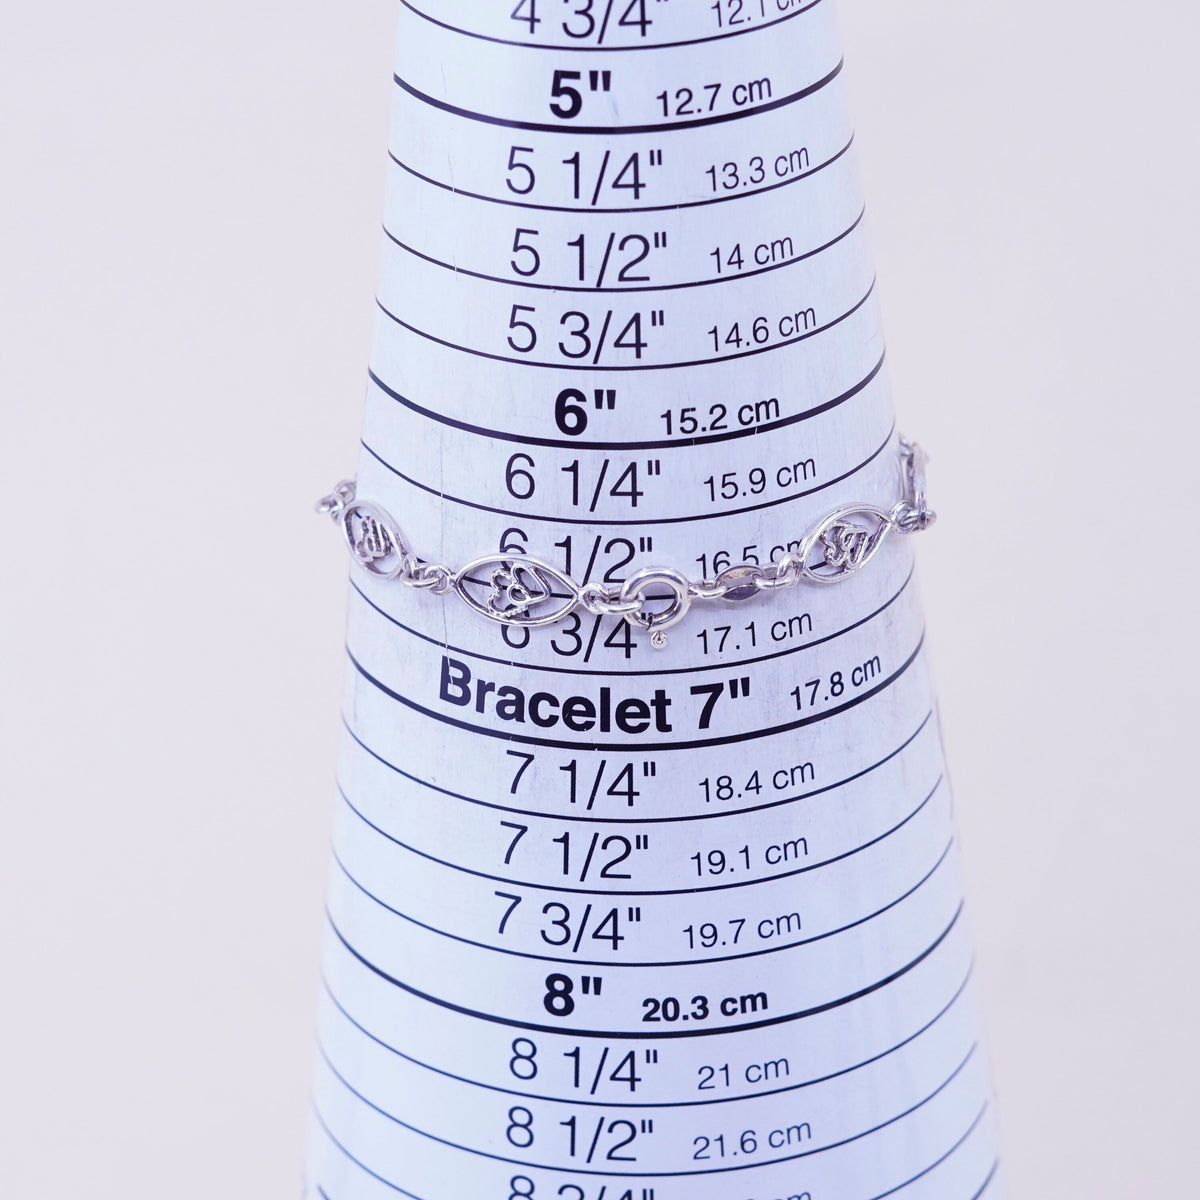 4 3/4" 12.1 cm
5" 12.7 cm
5 1/4" 13.3 cm
5 1/2" 14 cm
5 3/4" 14.6 cm
6" 15.2 cm
6 1/4" 15.9 cm
6 1/2" 16.5 cm
6 3/4" 17.1 cm
Bracelet 7" 17.8 cm
7 1/4" 18.4 cm
7 1/2" 19.1 cm
7 3/4" 19.7 cm
8" 20.3 cm
8 1/4" 21 cm
8 1/2" 21.6 cm
8 3/4" cm